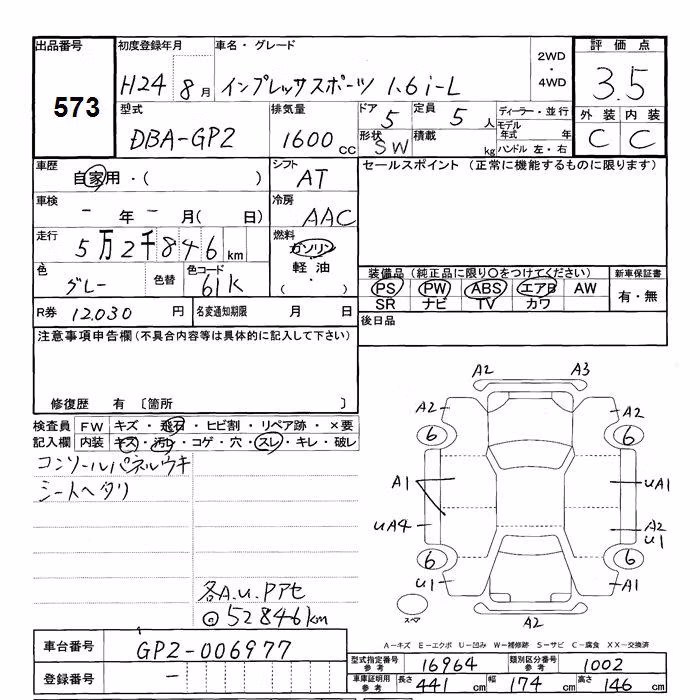 出品番号
573
初度登録年月
H24 8月
車名・グレード
インプレッサスポーツ 1.6i-L
2WD
・
4WD
評価点
3.5
外装 内装
C C
型式
DBA-GP2
排気量
1600cc
ドア
5
形状
SW
定員
5人
積載
kg
ディーラー・並行
モデル年式 年
ハンドル 左・右
車歴
自家用・( )
シフト
AT
車検
- 年 - 月( 日)
冷房
AAC
走行
5万2千846km
燃料
ガソリン
軽油
・
色
グレー
色替
色コード
61K
R券 12,030 円
名変通知期限 月 日
セールスポイント (正常に機能するものに限ります)
装備品(純正品に限り○をつけてください)
新車保証書
PS PW ABS エアB AW
SR ナビ TV カワ
有・無
後日品
注意事項申告欄(不具合内容等は具体的に記入して下さい)
修復歴 有 〔箇所 〕
検査員記入欄
FW キズ・飛石・ヒビ割・リペア跡・×要
内装 キズ・汚レ・コゲ・穴・スレ・キレ・破レ
コンソールパネルウキ
シートヘタリ
各A.U.Pアセ
@52846km
A2 A3
A2 A2
6 6
A1 uA1
uA4 A2
u1
6 6
u1 A1
スペア
A2
A-キズ E-エクボ U-凹み W-補修跡 S-サビ C-腐食 XX-交換済
車台番号 GP2-006977
登録番号 -
型式指定番号参考 16964
類別区分番号参考 1002
車庫証明用参考 長さ 441cm 幅 174cm 高さ 146cm